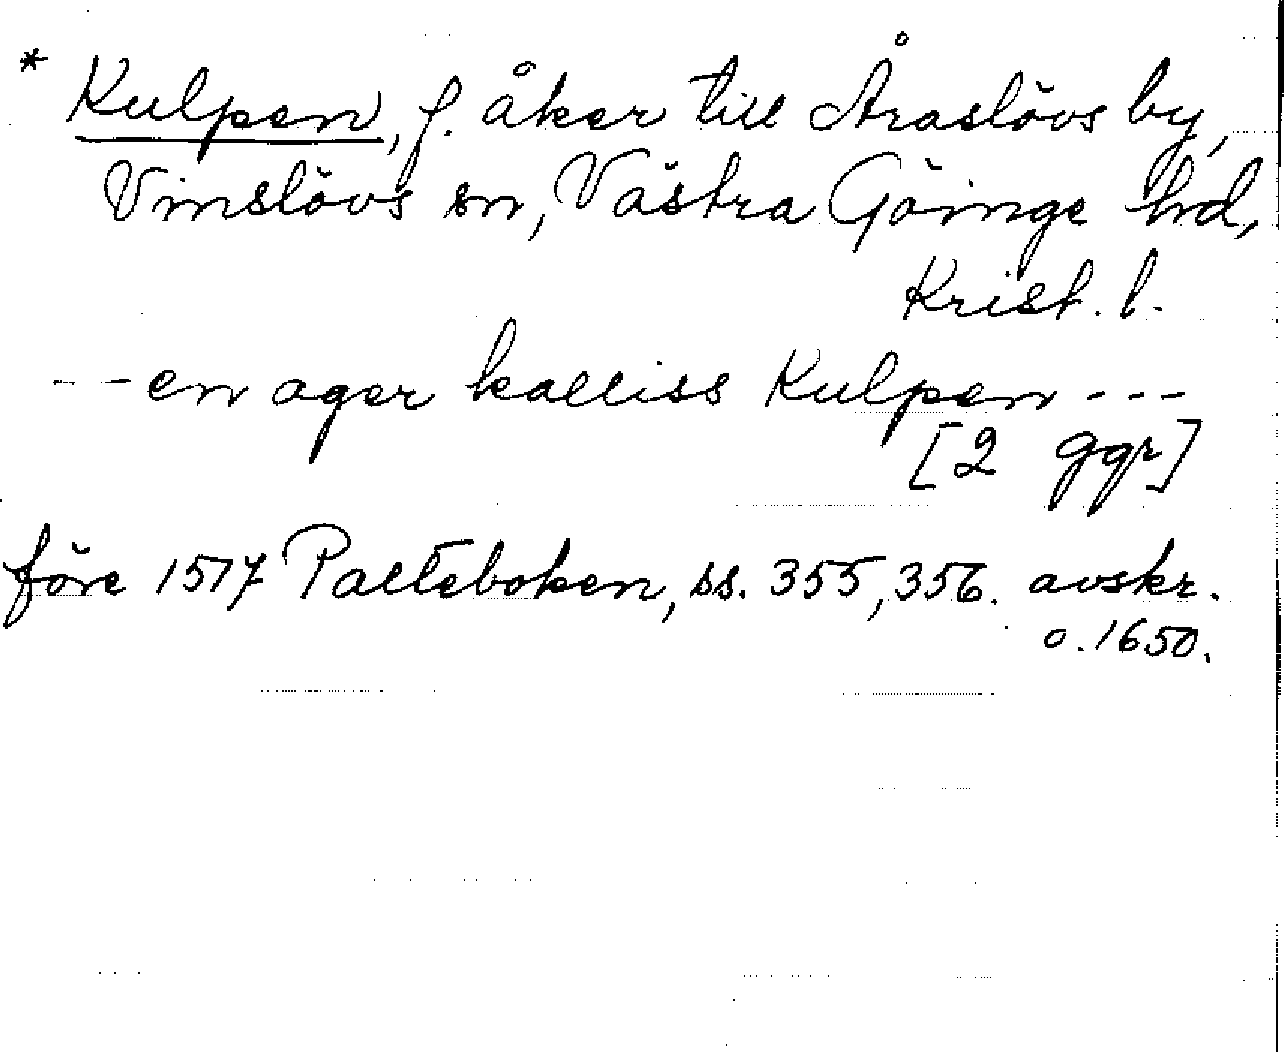 * Kulpen, f. åker till Åraslövs by,
Vinslövs sn, Västra Göinge hrd,
Krist. l.
- - - en ager kalliss Kulpen - - -
[2 ggr]
före 1517 Palteboken, ss. 355, 356. avskr.
o. 1650.